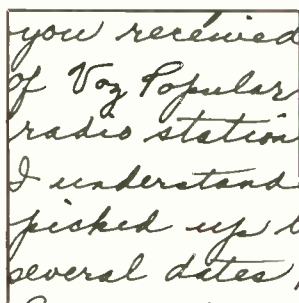 you received
of Voz Popular
radio station
I understand
picked up
several dates,